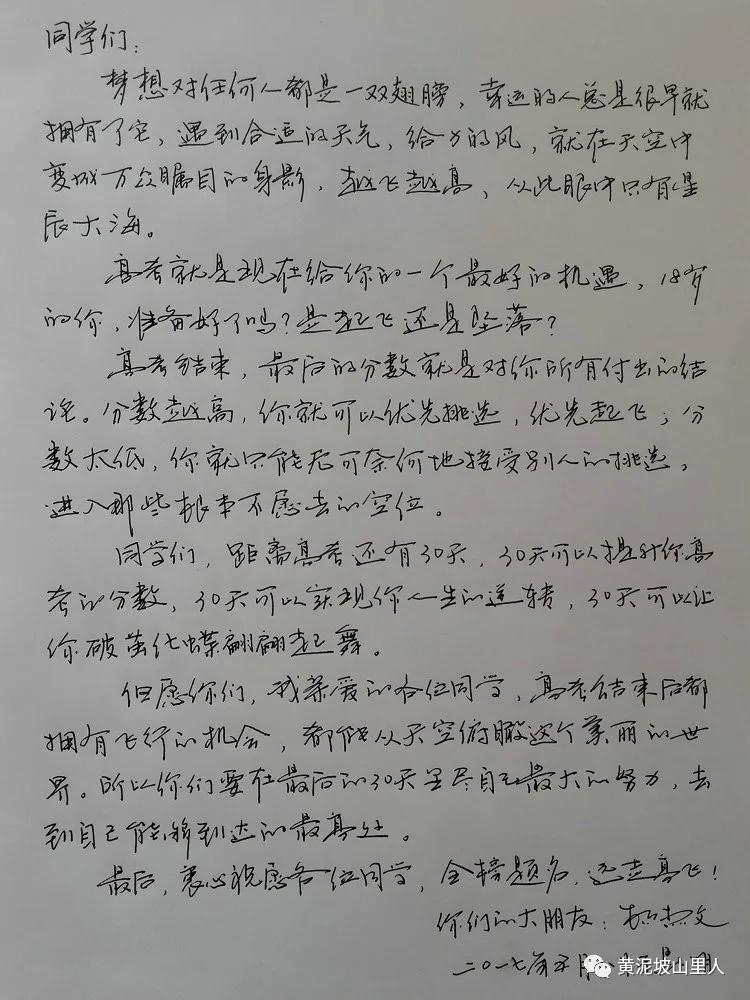 同学们：
梦想对任何人都是一双翅膀，幸运的人总是很早就
拥有了它，遇到合适的天气，给力的风，就在天空中
变成万众瞩目的身影，越飞越高，从此眼中只有星
辰大海。
高考就是现在给你的一个最好的机遇，18岁
的你，准备好了吗？是起飞还是坠落？
高考结束，最后的分数就是对你所有付出的结
论。分数越高，你就可以优先挑选，优先起飞；分
数太低，你就只能无可奈何地接受别人的挑选，
进入那些根本不愿去的空位。
同学们，距离高考还有30天，30天可以提升你高
考的分数，30天可以实现你人生的逆转，30天可以让
你破茧化蝶翩翩起舞。
但愿你们，我亲爱的各位同学，高考结束后都
拥有飞行的机会，都能从天空俯瞰这个美丽的世
界。所以你们要在最后的30天里尽自己最大的努力，去
到自己能够到达的最高处。
最后，衷心祝愿各位同学，金榜题名，远走高飞！
你们的大朋友：文
二〇一七年五月
黄泥坡山里人